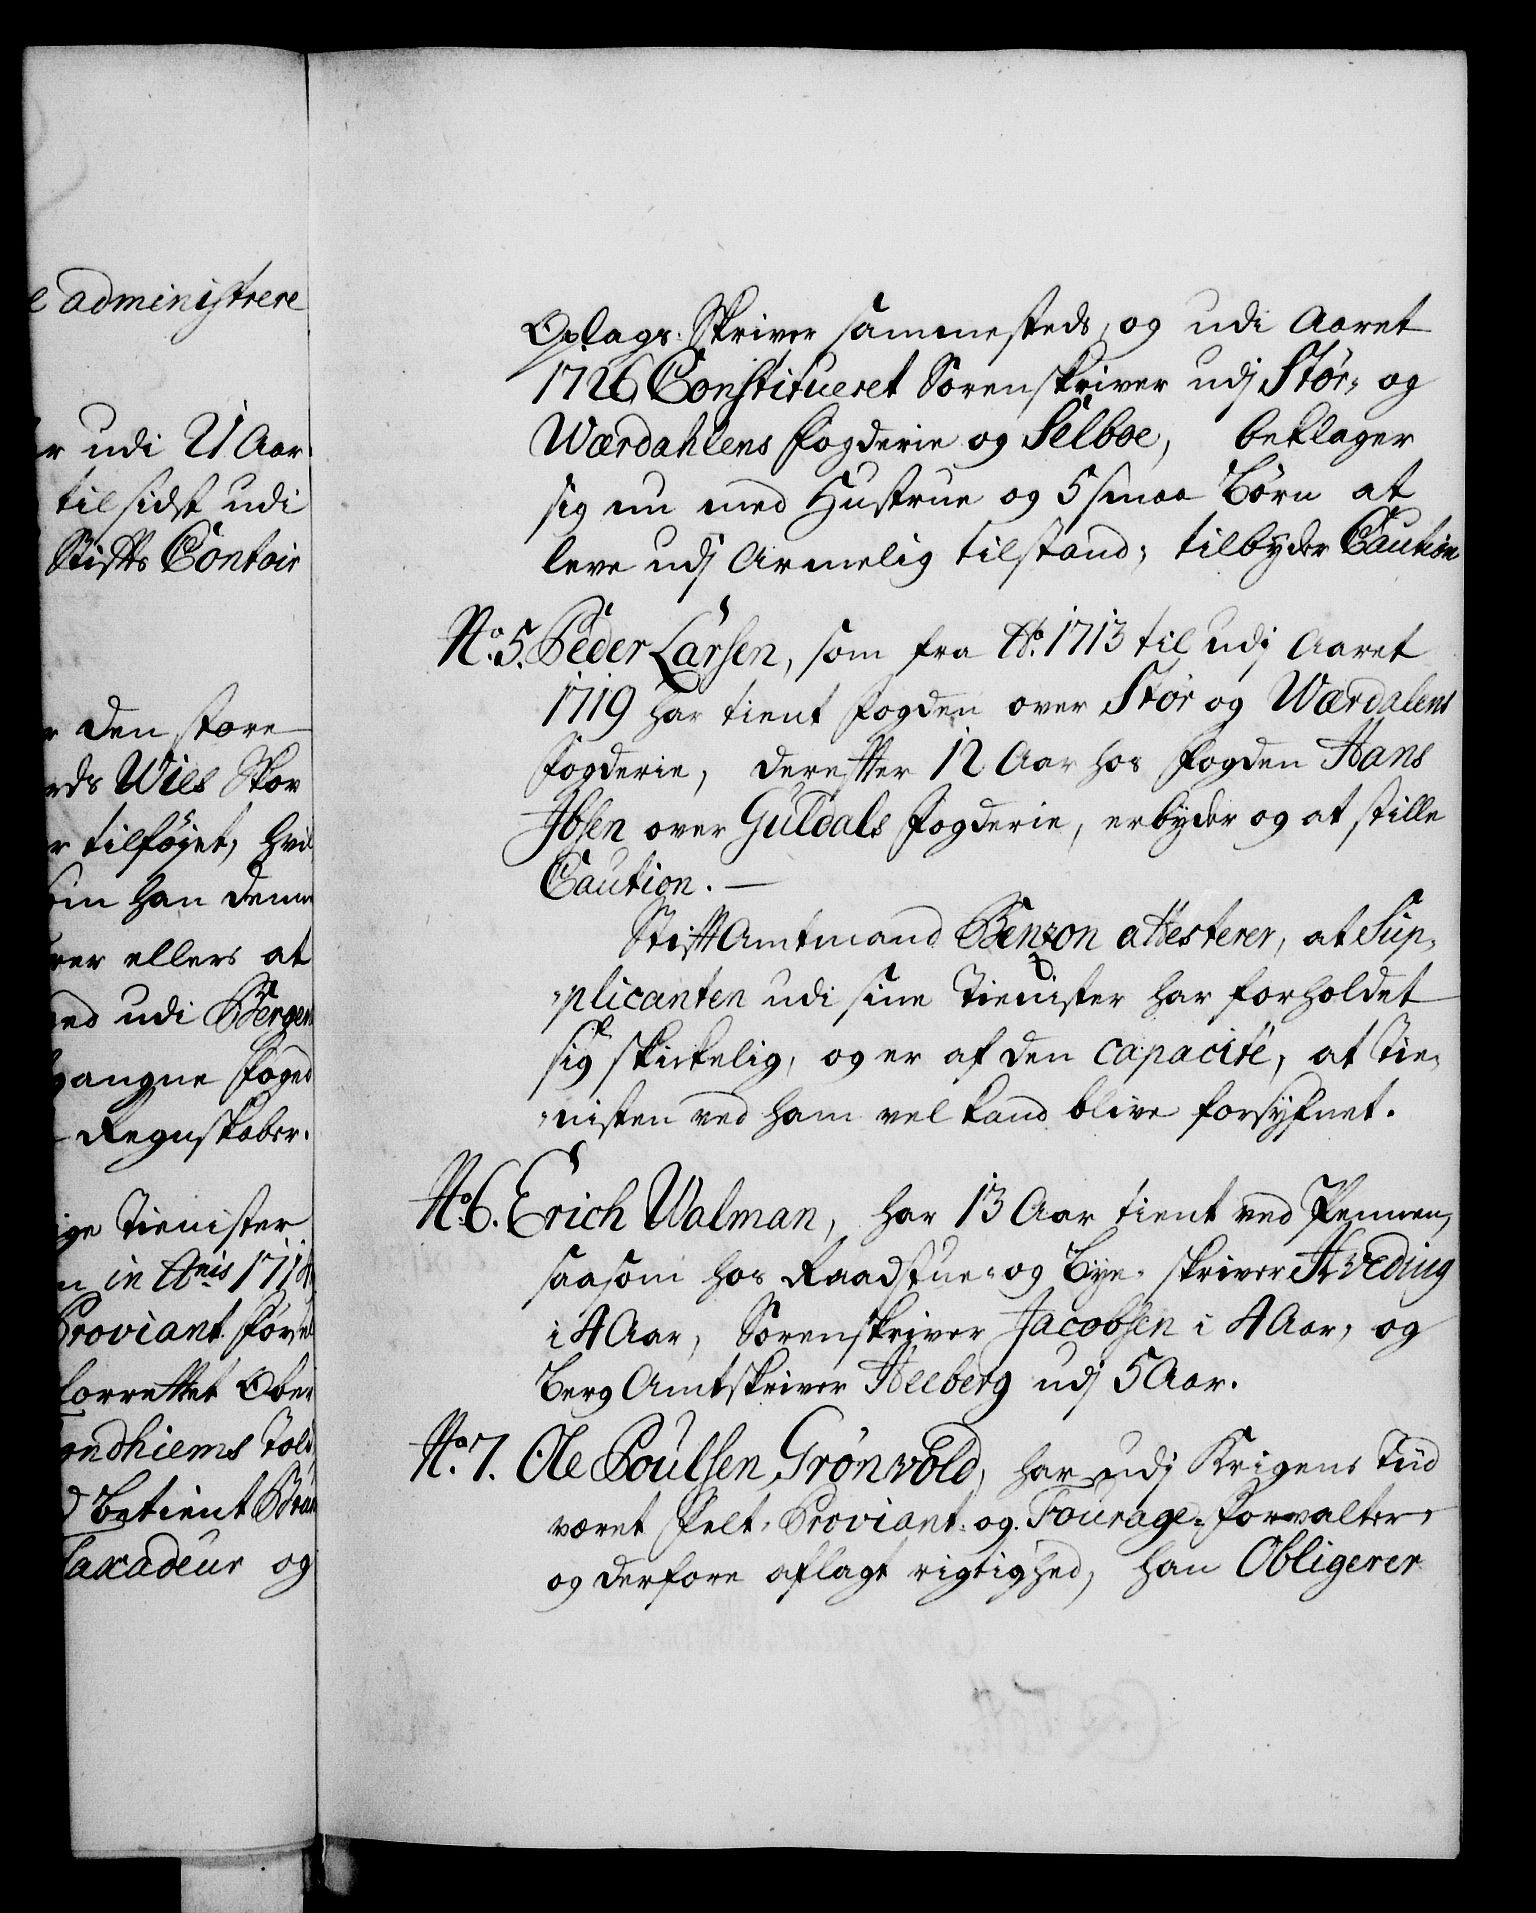 e administrere
r udi 21 Aar
til sidst udi
Stifts Contoir
r den store
rds Wies Skov
r tilføyet, hvil
om han denne
rer ellers at
ned udi Bergen
gangne foged
Regnskaber.
ige Tienister
n in Anis 1714
Proviant forval
forrettet Ober
ondhiems Told
d betient Brau
Taxadeur og
Oplags Skriver sammesteds, og udi Aaret
1726 Constitueret Sorenskriver udj Stør- og
Wærdahlens fogderie og Selboe, beklager
sig nu med Hustrue og 5 smaa Børn at
leve udj Armelig tilstand; tilbyder Caution
No. 5. Peder Larsen, som fra Ao. 1713 til udj Aaret
1719 har tient fogden over Stør og Wærdalens
fogderie, derefter 12 Aar hos fogden Hans
Ibsen over Guldals fogderie, erbyder og at stille
Caution. —
Stifft Amtmand Benzon attesterer, at Sup-
-plicanten udi sine Tienister har forholdet
sig skickelig, og er af den capacité, at Tie-
-nisten ved ham vel kand blive forsyfnet.
No. 6. Erich Walman, har 13 Aar tient ved Pennen,
saasom hos Raadstue- og Bye-skriver Hveding
i 4 Aar, Sorenskriver Jacobsen i 4 Aar, og
Berg Amtskriver Heeberg udj 5 Aar.
No. 7. Ole Poulsen Grønvold, har udj Krigens Tiid
været Felt-Proviant- og Fourage-forvalter,
og derfore aflagt rigtighed, han Obligerer